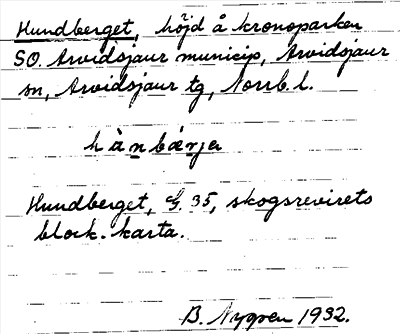 Hundberget, höjd å kronoparken
SO. Arvidsjaur municip, Arvidsjaur
sn, Arvidsjaur tg, Norrb. l.
hànbǽrja
Hundberget, G. 35, skogsrevirets
block-karta.
B. Nygren 1932.